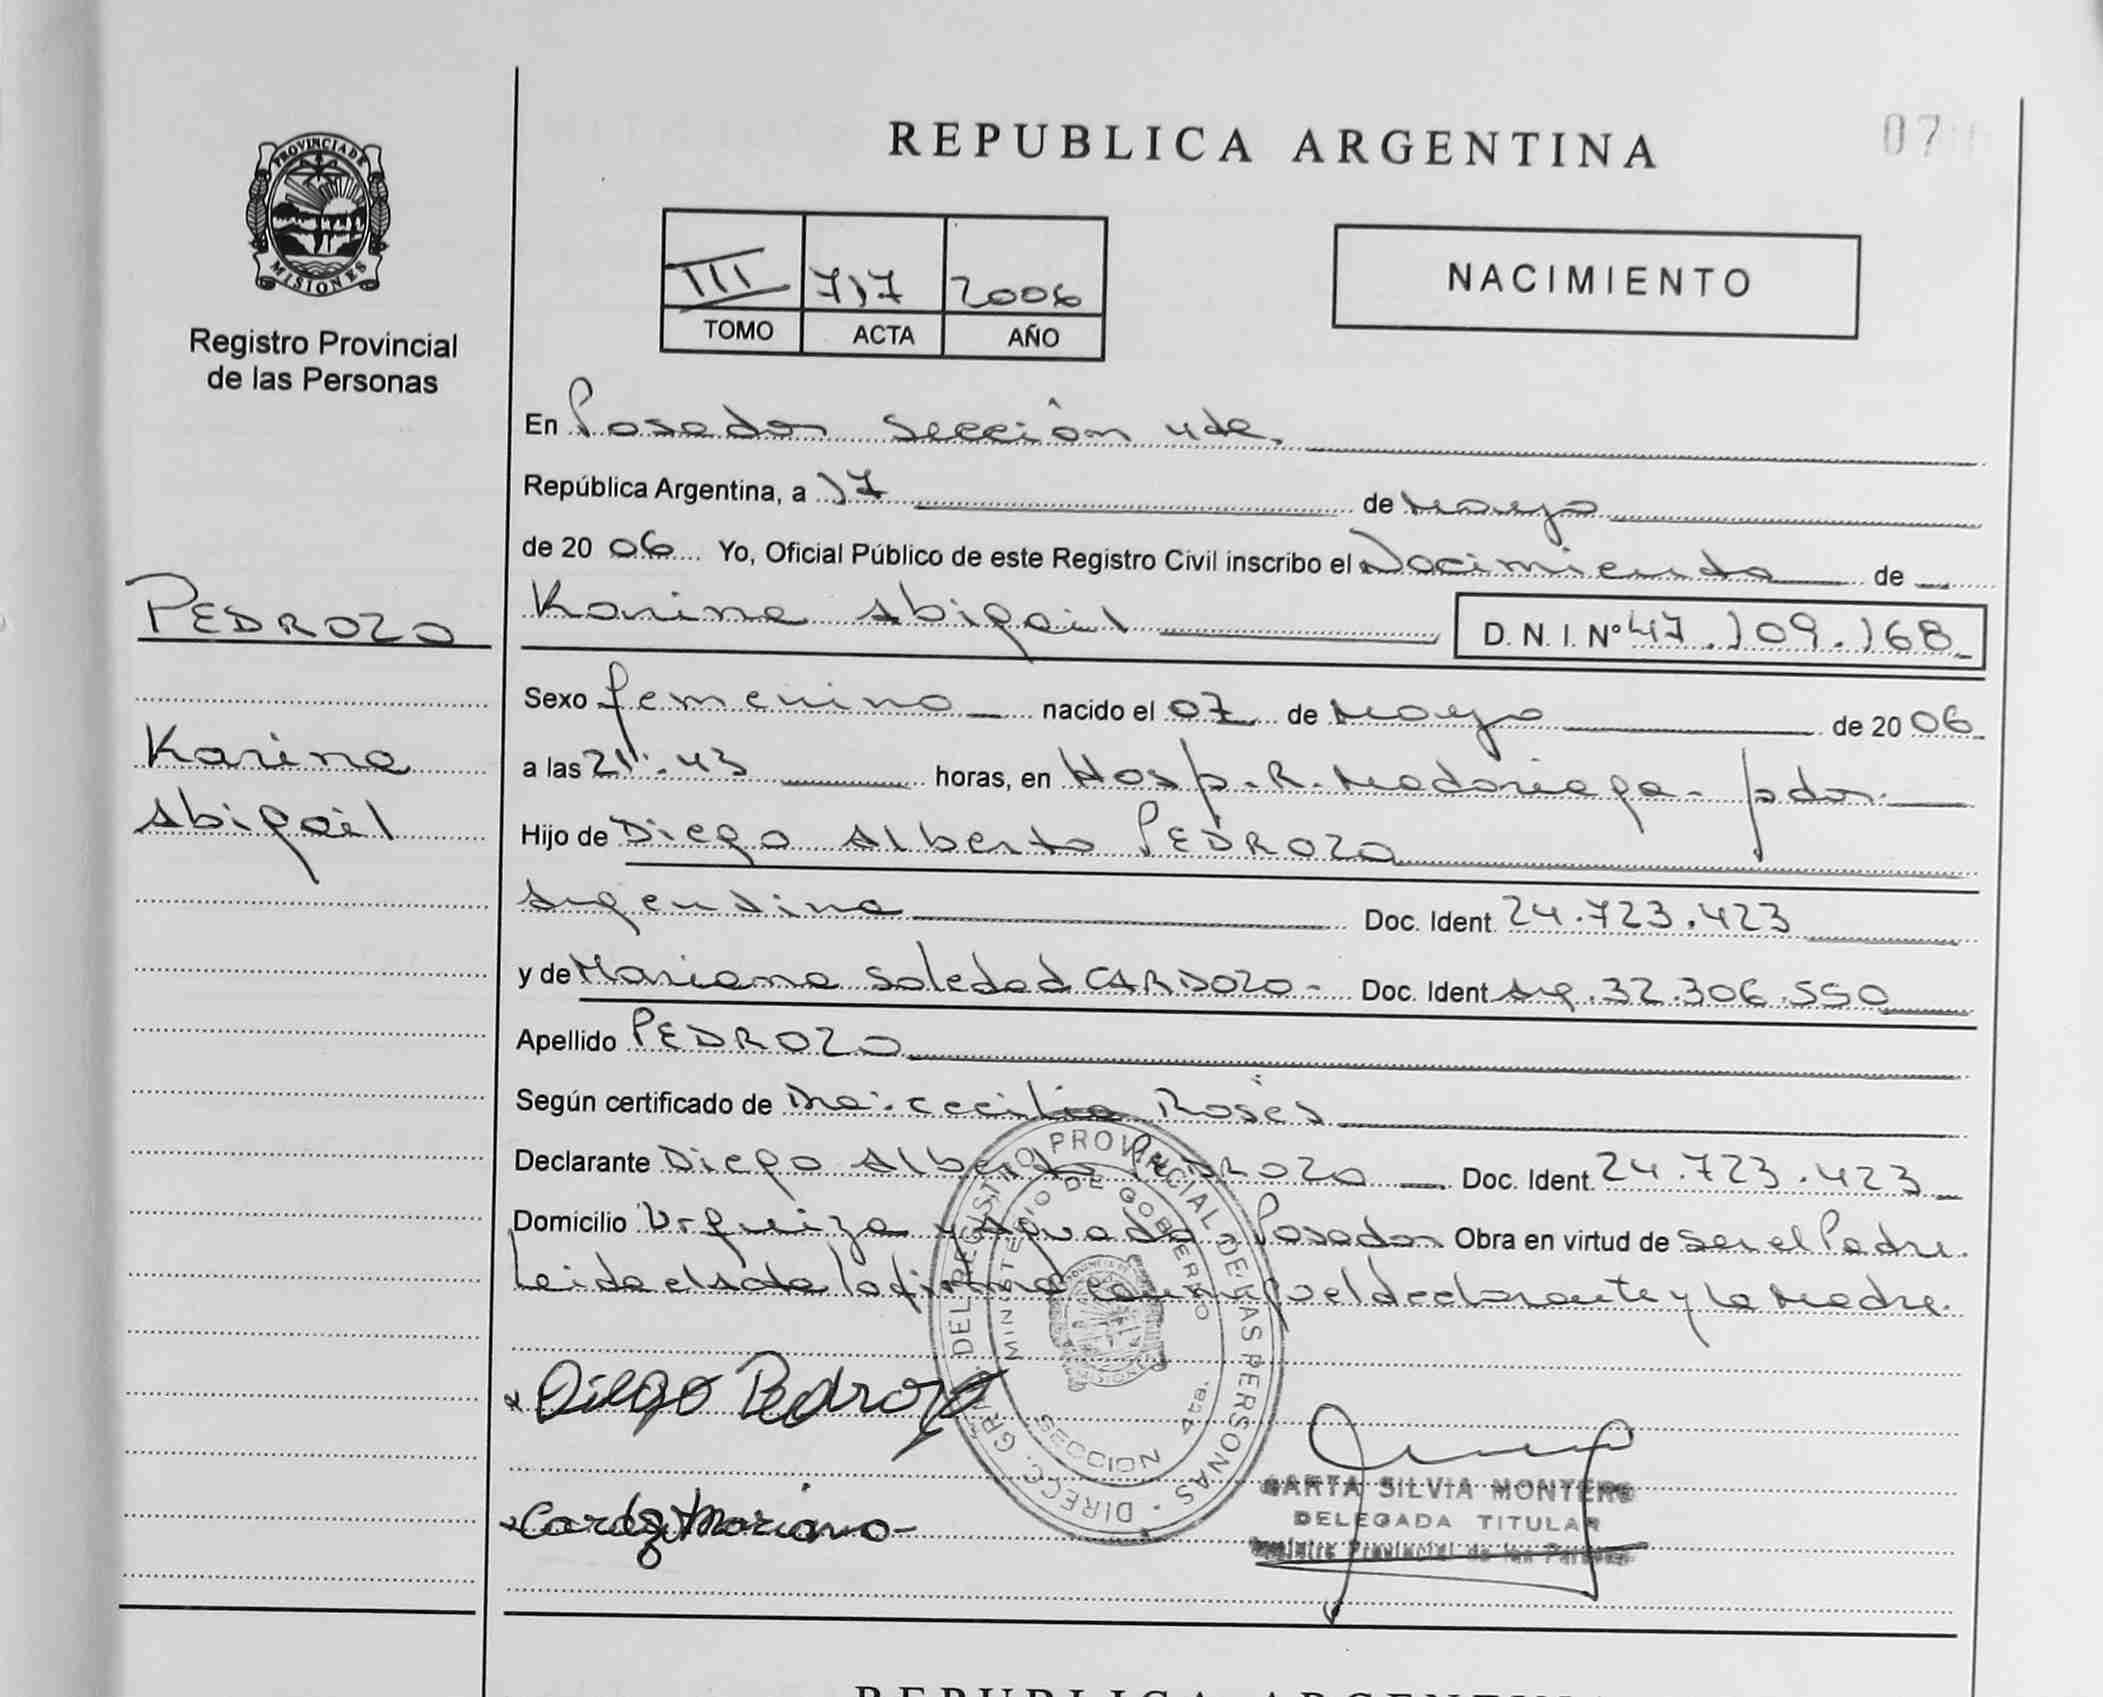 REPUBLICA ARGENTINA
07
PROVINCIA DE
MISIONES
Registro Provincial
de las Personas
III 717 2006
TOMO ACTA AÑO
NACIMIENTO
En Posadas Sección 4ta.
República Argentina, a 17 de Mayo
de 20 06 Yo, Oficial Público de este Registro Civil inscribo el Nacimiento de
PEDROZO
Karina Abigail D. N. I. Nº 47.109.168
Karina
Abigail
Sexo femenino nacido el 07 de Mayo de 20 06
a las 21:43 horas, en Hosp. R. Madariaga - pdas.
Hijo de Diego Alberto PEDROZO
Argentino Doc. Ident 24.723.423
y de Mariana Soledad CARDOZO - Doc. Ident Arg. 32.306.550
Apellido PEDROZO
Según certificado de Dra. Cecilia Roses
Declarante Diego Alberto PEDROZO Doc. Ident. 24.723.423
Domicilio Urquiza y Aguado Posadas Obra en virtud de ser el Padre.
Leida el acta la firma conmigo el declarante y la Madre.
DIRECC. GRAL. DEL REGISTRO PROVINCIAL DE LAS PERSONAS
MINISTERIO DE GOBIERNO
SECCION 4ta.
Diego Pedrozo
Cardozo Mariana
MARTA SILVIA MONTERO
DELEGADA TITULAR
Registro Provincial de las Personas
REPUBLICA ARGENTINA